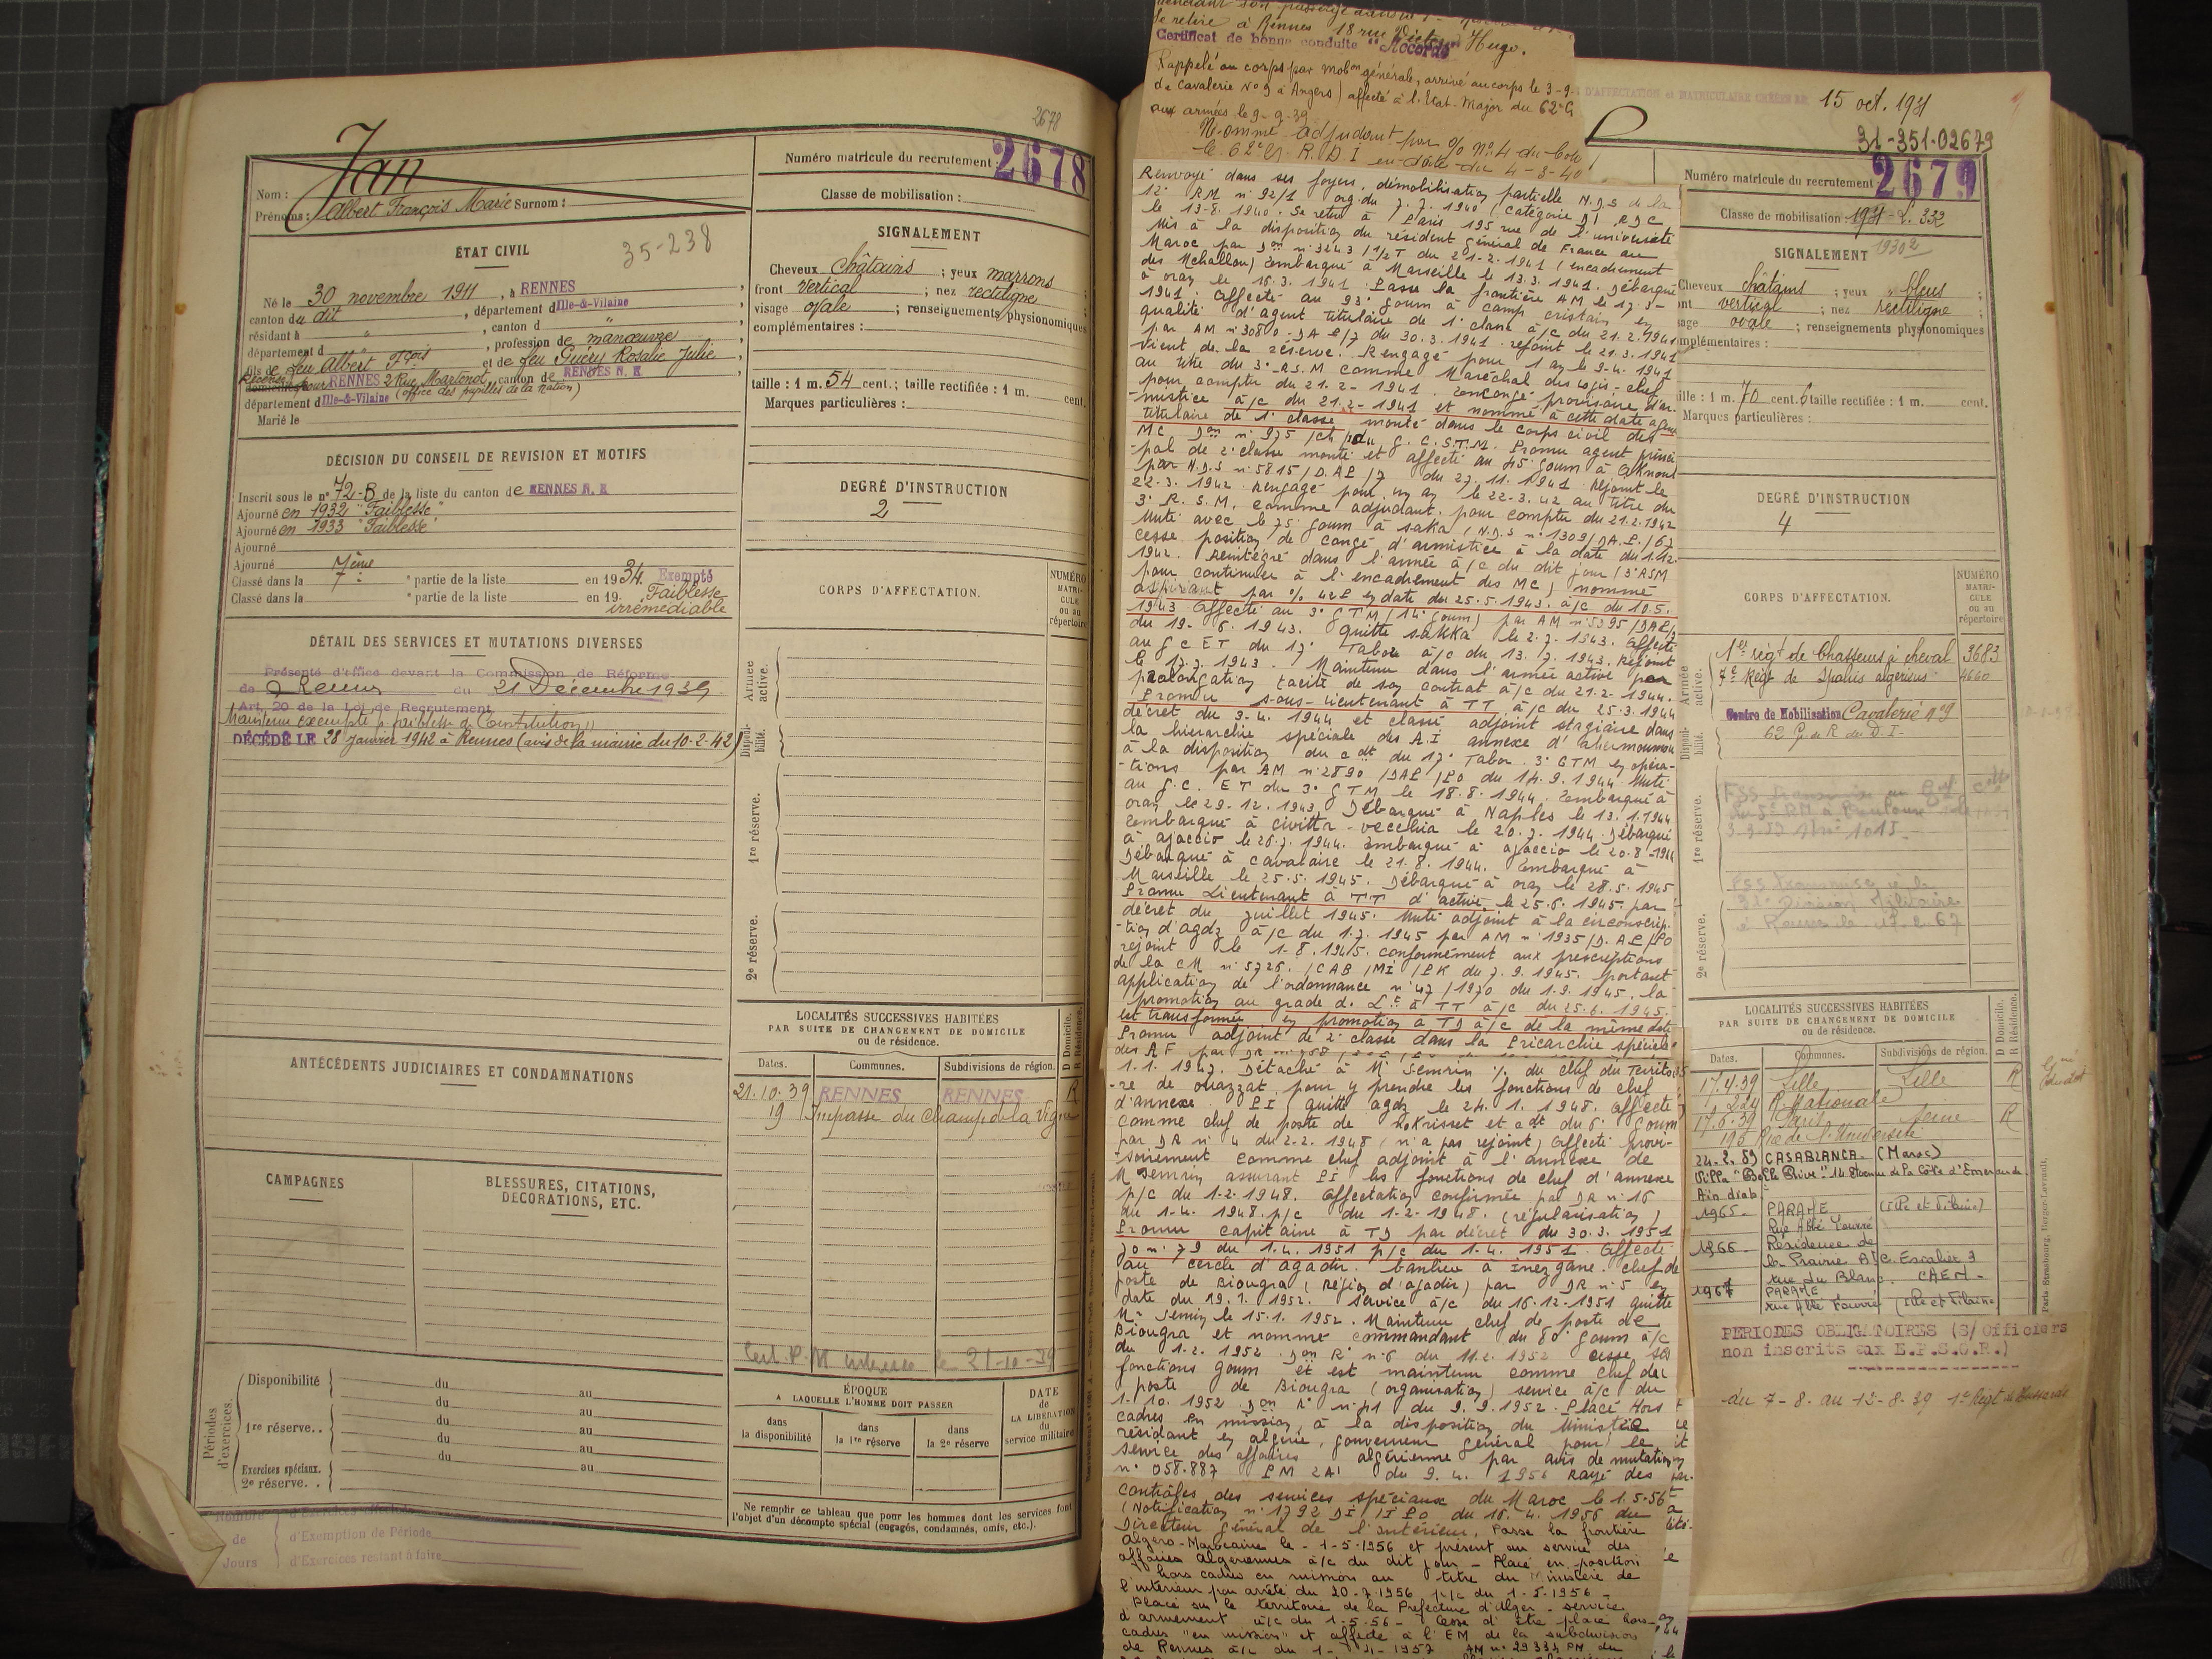 2678
Jan
Numéro matricule du recrutement : 2678
Nom :
Prénoms : Albert François Marie Surnom :
Classe de mobilisation :
ÉTAT CIVIL
35-238
Né le 30 novembre 1911, à RENNES
canton du dit, département d'Ille-&-Vilaine
résidant à " , canton d "
département d " , profession de manœuvre
fils de feu Albert Fçois et de feu Guéry Rosalie Julie
Recensé pour RENNES 2 Rue Martenot, canton de RENNES N. E
département d'Ille-&-Vilaine (office des pupilles de la Nation)
Marié le
SIGNALEMENT
Cheveux châtains ; yeux marrons ;
front vertical ; nez rectiligne ;
visage ovale ; renseignements physionomiques
complémentaires :
taille : 1 m. 54 cent.; taille rectifiée : 1 m. cent.
Marques particulières :
DÉCISION DU CONSEIL DE REVISION ET MOTIFS
Inscrit sous le n° 72-B de la liste du canton de RENNES N. E
Ajourné en 1932 "Faiblesse"
Ajourné en 1933 "Faiblesse"
Ajourné
Ajourné 7ème
Classé dans la 7e partie de la liste en 1934. Exempté
Classé dans la e partie de la liste en 19 Faiblesse
irrémédiable
DEGRÉ D'INSTRUCTION
2
CORPS D'AFFECTATION.
NUMÉRO MATRICULE ou au répertoire
DÉTAIL DES SERVICES ET MUTATIONS DIVERSES
Présenté d'office devant la Commission de Réforme
de Rennes du 21 Décembre 1939
Art. 20 de la Loi de Recrutement
Maintenu exempté "faiblesse de Constitution"
DÉCÉDÉ LE 28 janvier 1942 à Rennes (avis de la mairie du 10-2-42)
Armée active.
Disponibilité.
1re réserve.
2e réserve.
ANTÉCÉDENTS JUDICIAIRES ET CONDAMNATIONS
LOCALITÉS SUCCESSIVES HABITÉES
PAR SUITE DE CHANGEMENT DE DOMICILE
ou de résidence.
D Domicile.
R Résidence.
Dates. Communes. Subdivisions de région.
21.10.39 RENNES RENNES R
19 Impasse du Champ de la Vigne
CAMPAGNES
BLESSURES, CITATIONS,
DÉCORATIONS, ETC.
le 21-10-39
Périodes d'exercices.
Disponibilité du au
1re réserve.. du au
du au
du au
Exercices spéciaux. du au
2e réserve. .
ÉPOQUE
A LAQUELLE L'HOMME DOIT PASSER
dans la disponibilité
dans la 1re réserve
dans la 2e réserve
DATE de LA LIBÉRATION du service militaire
Ne remplir ce tableau que pour les hommes dont les services font
l'objet d'un décompte spécial (engagés, condamnés, omis, etc.).
Nombre de Jours
d'Exercices effectués
d'Exemption de Période
d'Exercices restant à faire
se retire à Rennes 18 rue Victor Hugo.
Certificat de bonne conduite "Accordé"
Rappelé au corps par mobon générale, arrivé au corps le 3-9-
de Cavalerie N° 9 à Angers) affecté à l'Etat-Major du 62e G
aux armées le 9-9-39
Nommé adjudant par o/o n° 4 du
le 62e G. R. D. I en date du 4-3-40
Renvoyé dans ses foyers, démobilisation partielle N.D.S de la
12e RM n° 92/1 org. du 7.7.1940 (catégorie D1 RDC
le 13-8.1940. Se retire à Paris 195 rue de l'université
Mis à la disposition du résident général de France au
Maroc par Don n° 3243 /1/2T du 21-2-1941 (encadrement
des Mehallas) Embarqué à Marseille le 13.3.1941. Débarqué
à oran le 16.3.1941. Passe la frontière AM le 17.3-
1941. Affecté au 93e goum à camp cristain en
qualité d'agent titulaire de 1e classe à/c du 21.2.1941
par AM n° 3080-DAP/7 du 30.3.1941 rejoint le 21.3.1941
Vient de la réserve. Rengagé pour 1 an le 9-4.1941
au titre du 3e R.S.M comme Maréchal des logis-chef
pour compter du 21-2-1941. En congé provisoire d'ar-
mistice à/c du 21-2-1941 et nommé à cette date agent
titulaire de 1e classe monté dans le corps civil des
MC Don n° 975 /ch /du G.C.S.T.M. Promu agent princi-
pal de 2e classe monté et affecté au 45e goum à Aknoul
par N.D.S n° 5815/D.AP/7 du 27.11.1941 Rejoint le
22-3.1942 Rengagé pour un an le 22-3.42 au titre du
3e R.S.M. comme adjudant. pour compter du 21.2.1942
Muté avec le 75e goum à saka (N.D.S n° 1309/DA.P./67
cesse position de congé d'armistice à la date du 1.12-
1942. Réintégré dans l'armée à/c du dit jour (3e RSM
pour continuer à l'encadrement des MC) nommé
aspirant par % 42P en date du 25.5.1943. à/c du 10.5.
1943 affecté au 3e GTM (14e goum) par AM n° 5395/DAP/2
du 19-6.1943. Quitte sakka le 2.7.1943. Affecté
au GCET du 17e Tabor à/c du 13.7.1943. Rejoint
le 17.7.1943. Maintenu dans l'armée active par
prolongation tacite de son contrat à/c du 21-2-1944.
Promu sous-lieutenant à TT à/c du 25.3.1944
décret du 3-4.1944 et classé adjoint stagiaire dans
la hiérarchie spéciale des A.I annexe d'ahermoumou
à la disposition du cdt du 17e Tabor 3e GTM en opéra-
-tions par AM n° 2890 /DAP/PO du 14.9.1944. Muté
au G.C. ET du 3e GTM le 18.8.1944. Embarqué à
oran le 29.12.1943. Débarqué à Naples le 13.1.1944
Embarqué à civitta-vecchia le 20.7.1944. Débarqué
à ajaccio le 26.7.1944. Embarqué à ajaccio le 20.8-1944
Débarqué à cavalaire le 21.8.1944. Embarqué à
Marseille le 25.5.1945. Débarqué à oran le 28.5.1945
Promu Lieutenant à TT d'active le 25.6.1945. par
décret du juillet 1945. Muté adjoint à la circonscrip-
tion d'agdz à/c du 1.7.1945 par AM n° 1935/D.AP/PO
rejoint le 1-8.1945. conformément aux prescriptions
de la CM n° 5726. /CAB/MI/PK du 7.9.1945. portant
application de l'ordonnance n° 47/1970 du 1.9.1945. la
promotion au grade de Lt à TT à/c du 25.6.1945.
est transformée en promotion à TD à/c de la même date
Promu adjoint de 2e classe dans la hiérarchie spéciale
des AF par DR n°
1.1.1947. Détaché à Mr Semrir % du chef du Territoi-
-re de ouarzazat pour y prendre les fonctions de chef
d'annexe PI quitte agdz le 24.1.1948. Affecté
comme chef de poste de et cdt du 6e Goum
par DR n° 4 du 2-2.1948 (n'a pas rejoint) affecté provi-
-soirement comme chef adjoint à l'annexe de
M Semrir assurant PI les fonctions de chef d'annexe
p/c du 1-2.1948. Affectation confirmée par DR n° 16
du 1-4.1948. p/c du 1-2-1948. (régularisation)
Promu capitaine à TD par décret du 30.3.1951
JO n° 79 du 1.4.1951 p/c du 1-4.1951. Affecté
au cercle d'agadir. banlieu à Inezgane. chef de
poste de Biougra (Région d'agadir) par DR n° 5 en
date du 19.1.1952. service à/c du 16-12-1951 quitte
Mr Semrir le 15.1.1952. Maintenu chef de poste de
Biougra et nommé commandant du 80e goum à/c
du 1-2.1952. Don R n° 6 du 11.2.1952 cesse ses
fonctions goum et est maintenu comme chef de
poste de Biougra (organisation) service à/c du
1-10.1952 Don R n° 41 du 9.9.1952. Placé Hors
cadres en mission, à la disposition du Ministre
résidant en algérie, gouverneur général pour le
service des affaires algérienne par avis de mutation
n° 058.887 PM 2A1 du 9.4.1956 Rayé des
contrôles des services spéciaux du Maroc le 1.5.56
(Notification n° 1792 DI/IPO du 16.4.1956 du
Directeur général de l'intérieur. Passe la frontière
Algéro-Marocaine le -1-5-1956 et présent au service des
affaires Algériennes à/c du dit jour - Placé en position
hors cadres en mission au titre du Ministère de
l'intérieur par arrêté du 20-7-1956 p/c du 1-5-1956 -
Placé sur le territoire de la Préfecture d'Alger - service
d'armement à/c du 1-5-56 - Cesse d'être placé hors-
cadres "en mission" et affecté à l'EM de la subdivision
de Rennes à/c du 1- -4-1957 AM n° 29334 PM du
D'AFFECTATION et MATRICULAIRE CRÉÉES LE 15 oct. 1931
31-351.02679
Numéro matricule du recrutement 2679
Classe de mobilisation : 1931-
SIGNALEMENT 1930
Cheveux châtains ; yeux bleus ;
vertical ; nez rectiligne ;
ovale ; renseignements physionomiques
complémentaires :
taille : 1 m. 70 cent. 6 taille rectifiée : 1 m. cent.
Marques particulières :
DEGRÉ D'INSTRUCTION
4
CORPS D'AFFECTATION.
NUMÉRO MATRICULE ou au répertoire
Armée active.
1er régt de Chasseurs à cheval 3683
7e Régt de Spahis algériens 4660
Disponibilité.
Centre de Mobilisation Cavalerie n° 9
62 G. de R de D. I.
1re réserve.
2e réserve.
LOCALITÉS SUCCESSIVES HABITÉES
PAR SUITE DE CHANGEMENT DE DOMICILE
ou de résidence.
D Domicile.
R Résidence.
Dates. Communes. Subdivisions de région.
17.4.39 Lille Lille R
224 R Nationale
17.6.39 Paris Seine R
195 Rue de l'Université
24.2.59 CASABLANCA (Maroc)
Villa "Belle Rive" 14 avenue de la Côte d'Emeraude
Ain diab.
1965 PARAMÉ (Ille et Vilaine)
Rue Abbé
1966 Résidence de
la Prairie Escalier 3
rue du Blanc CAEN
1967 PARAMÉ
rue Abbé (Ille et Vilaine)
PERIODES OBLIGATOIRES (S/Officiers
non inscrits aux E.P.S.O.R.)
-du 7-8. au 12-8-39 1er Régt de Hussards